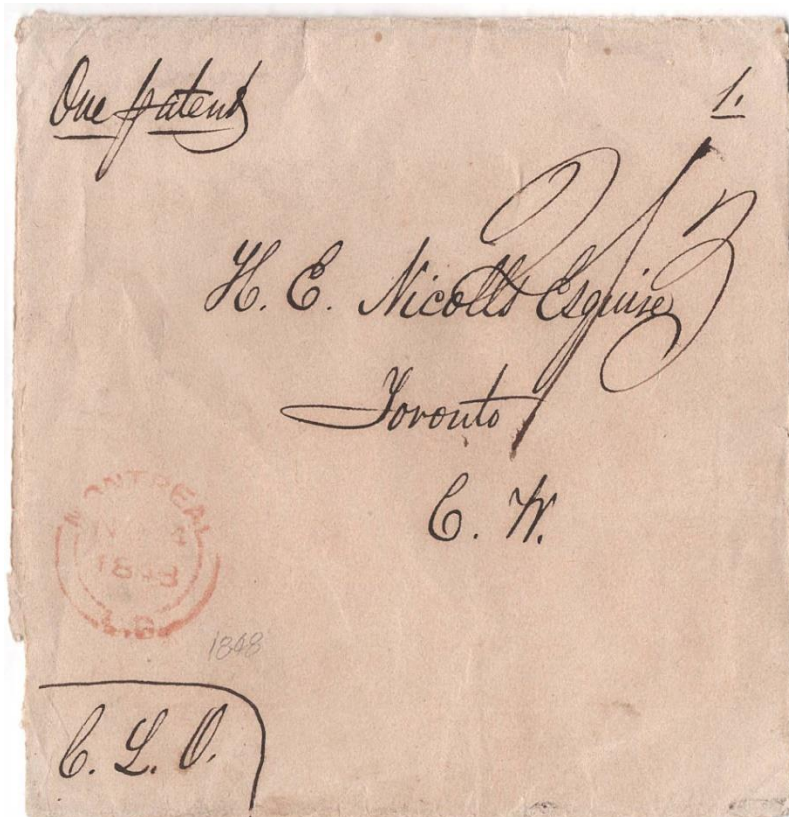 One patent
1.
2/3
H. E. Nicolls Esquire
Toronto
C. W.
MONTREAL
1848
L.C.
1848
C. L. O.